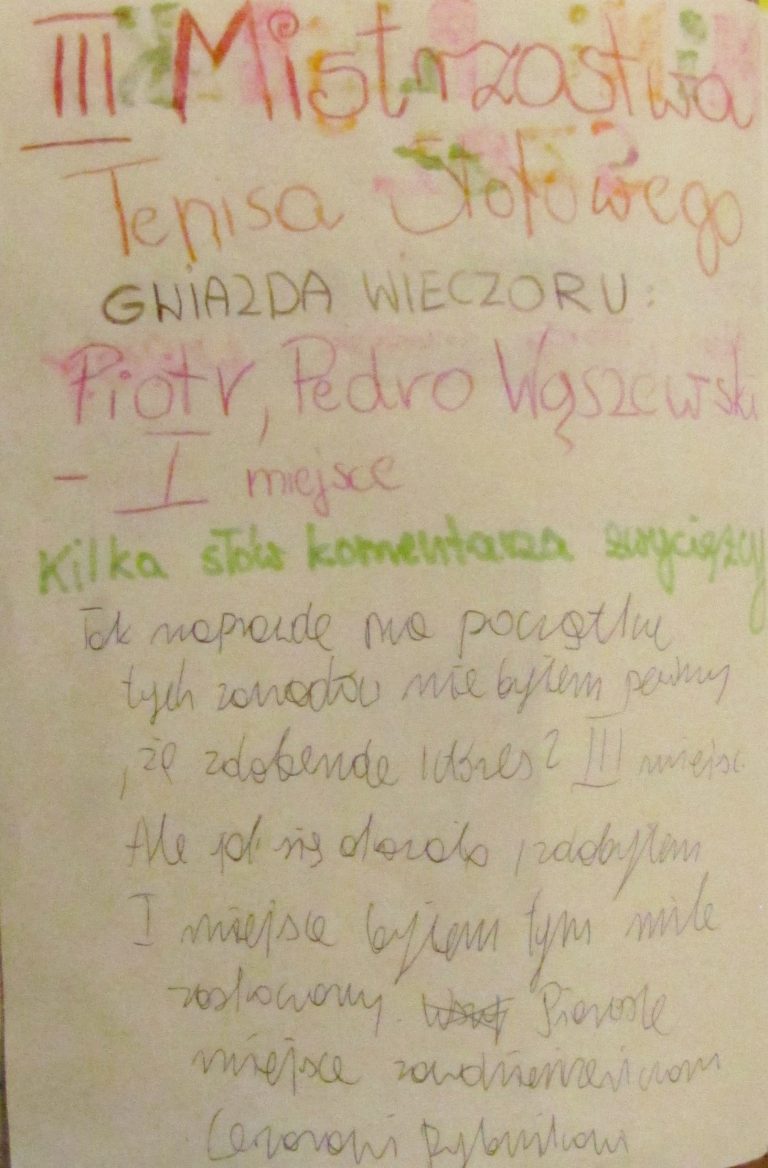 III Mistrzostwa
Tenisa Stołowego
GWIAZDA WIECZORU:
Piotr, Pedro Wąszewski
- I miejsce
Kilka słów komentarza zwycięzcy
Tak naprawdę na początku
tych zawodów nie byłem pewny
, że zdobende któreś? III miejsc
Ale jak się okazało zdobyłem
I miejsce byłem tym mile
zaskoczony. Pierwsze
miejsce